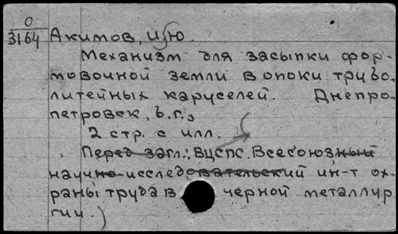 0
3164
Акимов, И.Ю.
Механизм для засыпки фор-
мовочной земли в опоки трубо-
литейных каруселей. Днепро-
петровск, б.г.,
2 стр. с илл.
Перед загл.: ВЦСПС. Всесоюзный
научно-исследовательский ин-т ох-
раны труда в черной металлур-
гии.)